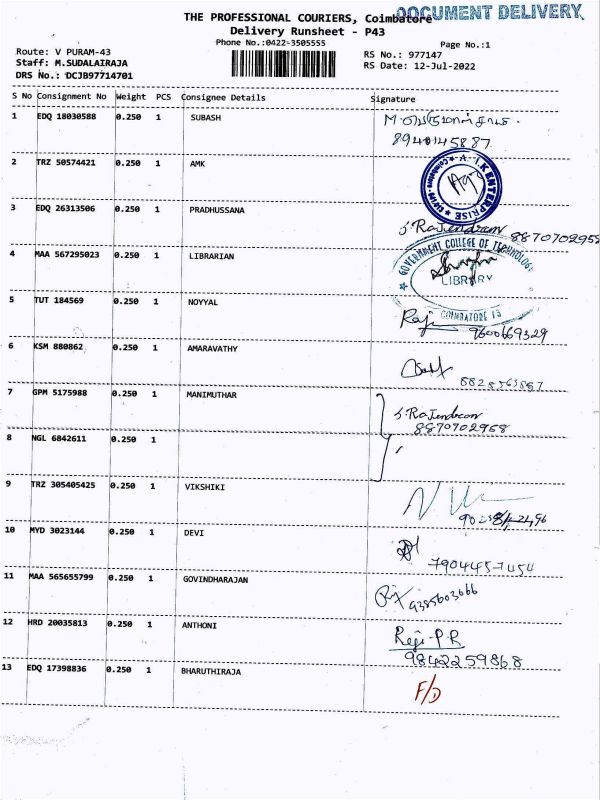 THE PROFESSIONAL COURIERS, Coimbatore
DOCUMENT DELIVERY
Delivery Runsheet - P43
Phone No.:0422-3505555
Page No.:1
Route: V PURAM-43
RS No.: 977147
Staff: M.SUDALAIRAJA
RS Date: 12-Jul-2022
DRS No.: DCJB97714701
S No Consignment No Weight PCS Consignee Details Signature
1 EDQ 18030588 0.250 1 SUBASH
8940145887
2 TRZ 50574421 0.250 1 AMK
A.I.K ENTERPRISE
3 EDQ 26313506 0.250 1 PRADHUSSANA
S.Rajendran 8870702958
4 MAA 567295023 0.250 1 LIBRARIAN
GOVERNMENT COLLEGE OF TECHNOLOGY
LIBRARY
COIMBATORE 13
5 TUT 184569 0.250 1 NOYYAL
Raji 9600669329
6 KSM 880862 0.250 1 AMARAVATHY
7 GPM 5175988 0.250 1 MANIMUTHAR
S.Rajendran
8870702958
8 NGL 6842611 0.250 1
9 TRZ 305405425 0.250 1 VIKSHIKI
10 MYD 3023144 0.250 1 DEVI
7904457454
11 MAA 565655799 0.250 1 GOVINDHARAJAN
9385603666
12 HRD 20035813 0.250 1 ANTHONI
Reji-P.R
9842259868
13 EDQ 17398836 0.250 1 BHARUTHIRAJA
F/D